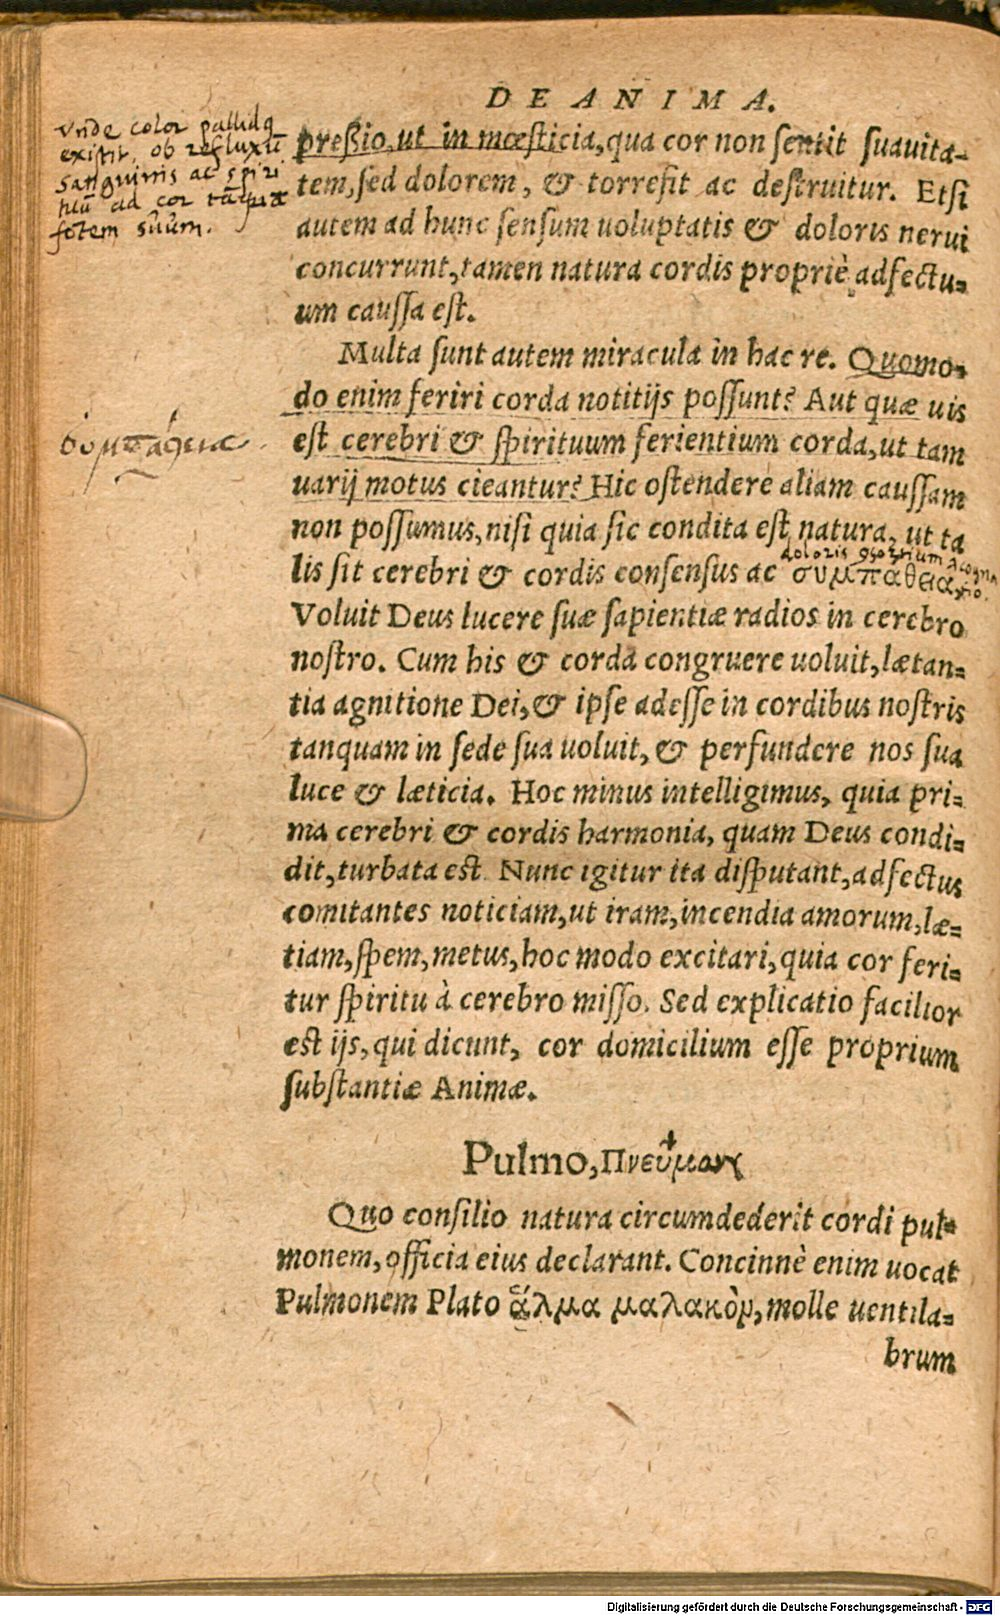 DE ANIMA.
Vnde color pallidꝰ
existit, ob refluxũ
sanguinis ac spiri
tuũ ad cor tãquã
fotem suũm.
preßio, ut in mœsticia, qua cor non sentit suauita-
tem, sed dolorem, & torrefit ac destruitur. Etsi
autem ad hunc sensum uoluptatis & doloris nerui
concurrunt, tamen natura cordis propriè adfectu-
um caussa est.
Multa sunt autem miracula in hac re. Quomo-
do enim feriri corda notitijs possunt? Aut quæ uis
συμπάθεια
est cerebri & spirituum ferientium corda, ut tam
uarij motus cieantur? Hic ostendere aliam caussam
non possumus, nisi quia sic condita est natura, ut ta
doloris
lis sit cerebri & cordis consensus ac συμπάθεια
Voluit Deus lucere suæ sapientiæ radios in cerebro
nostro. Cum his & corda congruere uoluit, lætan-
tia agnitione Dei, & ipse adesse in cordibus nostris
tanquam in sede sua uoluit, & perfundere nos sua
luce & læticia. Hoc minus intelligimus, quia pri-
ma cerebri & cordis harmonia, quam Deus condi-
dit, turbata est. Nunc igitur ita disputant, adfectus
comitantes noticiam, ut iram, incendia amorum, læ-
tiam, spem, metus, hoc modo excitari, quia cor feri-
tur spiritu à cerebro misso. Sed explicatio facilior
est ijs, qui dicunt, cor domicilium esse proprium
substantiæ Animæ.
Pulmo, Πνεύμων
Quo consilio natura circumdederit cordi pul-
monem, officia eius declarant. Concinnè enim uocat
Pulmonem Plato ἅλμα μαλακὸν, molle uentila-
brum
Digitalisierung gefördert durch die Deutsche Forschungsgemeinschaft - DFG